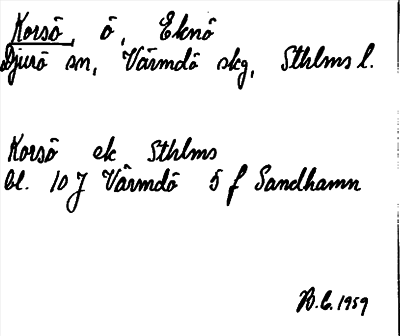 Korsö, ö, Eknö
Djurö sn, Värmdö skg, Sthlms l.
Korsö ek Sthlms
bl. 10 J Värmdö 5 f Sandhamn
1959